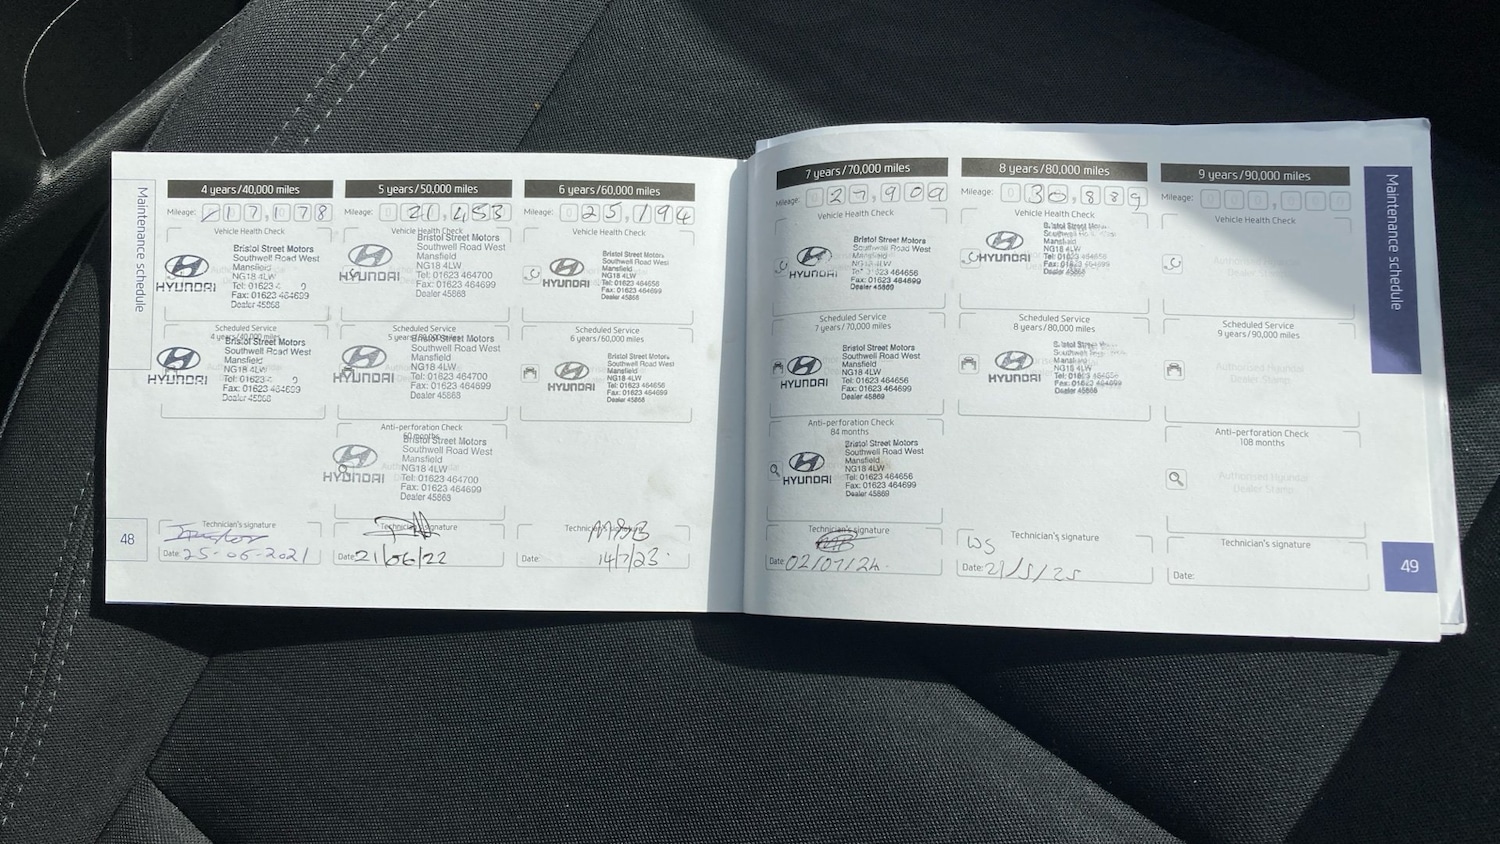 Maintenance schedule
4 years/40,000 miles
Mileage: 17,178
Vehicle Health Check
HYUNDAI
Bristol Street Motors
Southwell Road West
Mansfield
NG18 4LW
Tel: 01623
Fax: 01623 464699
Dealer 45868
Scheduled Service
4 years/40,000 miles
HYUNDAI
Bristol Street Motors
Southwell Road West
Mansfield
NG18 4LW
Tel: 01623
Fax: 01623 464699
Dealer 45868
Technician's signature
Date: 25-06-2021
48
5 years/50,000 miles
Mileage: 0 21,453
Vehicle Health Check
HYUNDAI
Bristol Street Motors
Southwell Road West
Mansfield
NG18 4LW
Tel: 01623 464700
Fax: 01623 464699
Dealer 45868
Scheduled Service
HYUNDAI
Bristol Street Motors
Southwell Road West
Mansfield
NG18 4LW
Tel: 01623 464700
Fax: 01623 464699
Dealer 45868
Anti-perforation Check
60 months
HYUNDAI
Bristol Street Motors
Southwell Road West
Mansfield
NG18 4LW
Tel: 01623 464700
Fax: 01623 464699
Dealer 45868
Technician's signature
Date: 21/06/22
6 years/60,000 miles
Mileage: 0 25,194
Vehicle Health Check
HYUNDAI
Bristol Street Motors
Southwell Road West
Mansfield
NG18 4LW
Tel: 01623 464656
Fax: 01623 464699
Dealer 45868
Scheduled Service
6 years/60,000 miles
HYUNDAI
Bristol Street Motors
Southwell Road West
Mansfield
NG18 4LW
Tel: 01623 464656
Fax: 01623 464699
Dealer 45868
Technician's signature
Date: 14/7/23
7 years/70,000 miles
Mileage: 0 27,909
Vehicle Health Check
HYUNDAI
Bristol Street Motors
Southwell Road West
Mansfield
NG18 4LW
Tel: 01623 464656
Fax: 01623 464699
Dealer 45869
Scheduled Service
7 years/70,000 miles
HYUNDAI
Bristol Street Motors
Southwell Road West
Mansfield
NG18 4LW
Tel: 01623 464656
Fax: 01623 464699
Dealer 45869
Anti-perforation Check
84 months
HYUNDAI
Bristol Street Motors
Southwell Road West
Mansfield
NG18 4LW
Tel: 01623 464656
Fax: 01623 464699
Dealer 45869
Technician's signature
Date: 02/07/24
8 years/80,000 miles
Mileage: 0 30,889
Vehicle Health Check
HYUNDAI
Bristol Street
Mansfield
NG18 4LW
Fax: 01623 464699
Scheduled Service
8 years/80,000 miles
HYUNDAI
Bristol Street
Mansfield
NG18 4LW
Tel: 01623 464656
Fax: 01623 464699
Technician's signature
WS
Date: 21/5/25
9 years/90,000 miles
Mileage: 0 0 0 , 0 0 0
Vehicle Health Check
Authorised Hyundai
Dealer Stamp
Scheduled Service
9 years/90,000 miles
Authorised Hyundai
Dealer Stamp
Anti-perforation Check
108 months
Authorised Hyundai
Dealer Stamp
Technician's signature
Date:
Maintenance schedule
49